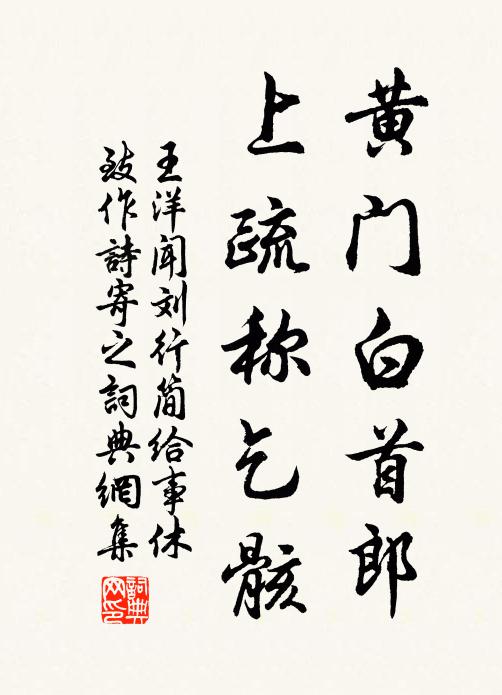 黄门白首郎
上疏称乞骸
王洋闻刘行简给事休
致作詩寄之詞典網集
詞典网印